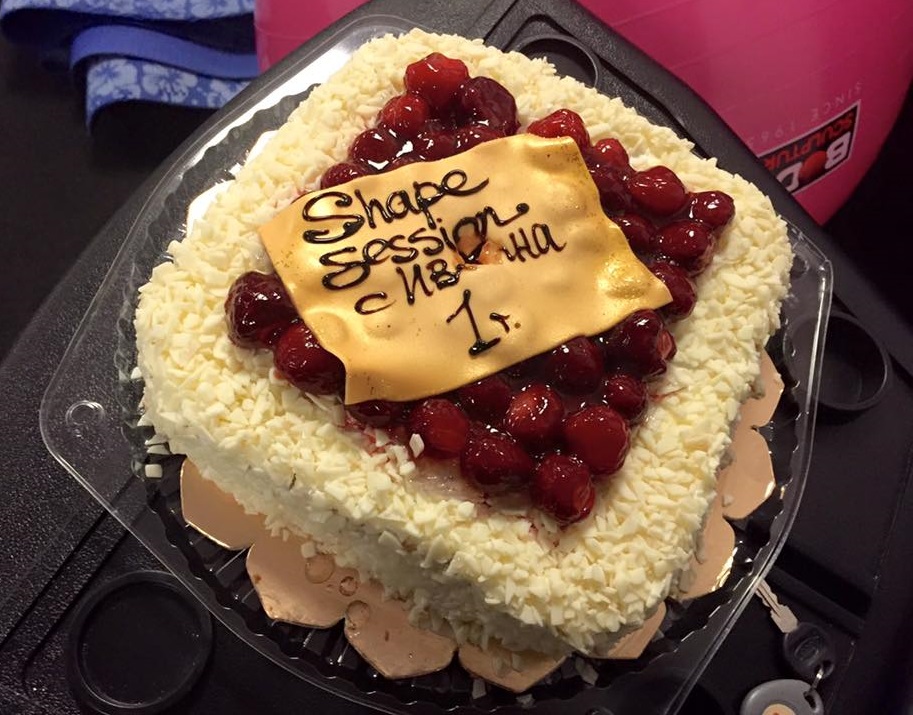 Shape
Session
с
1г.
BODY
SCULPTURE
SINCE 1965